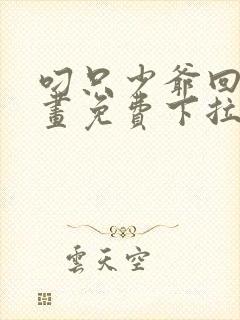 叼只少爷回
畫免費下拉
雲天空